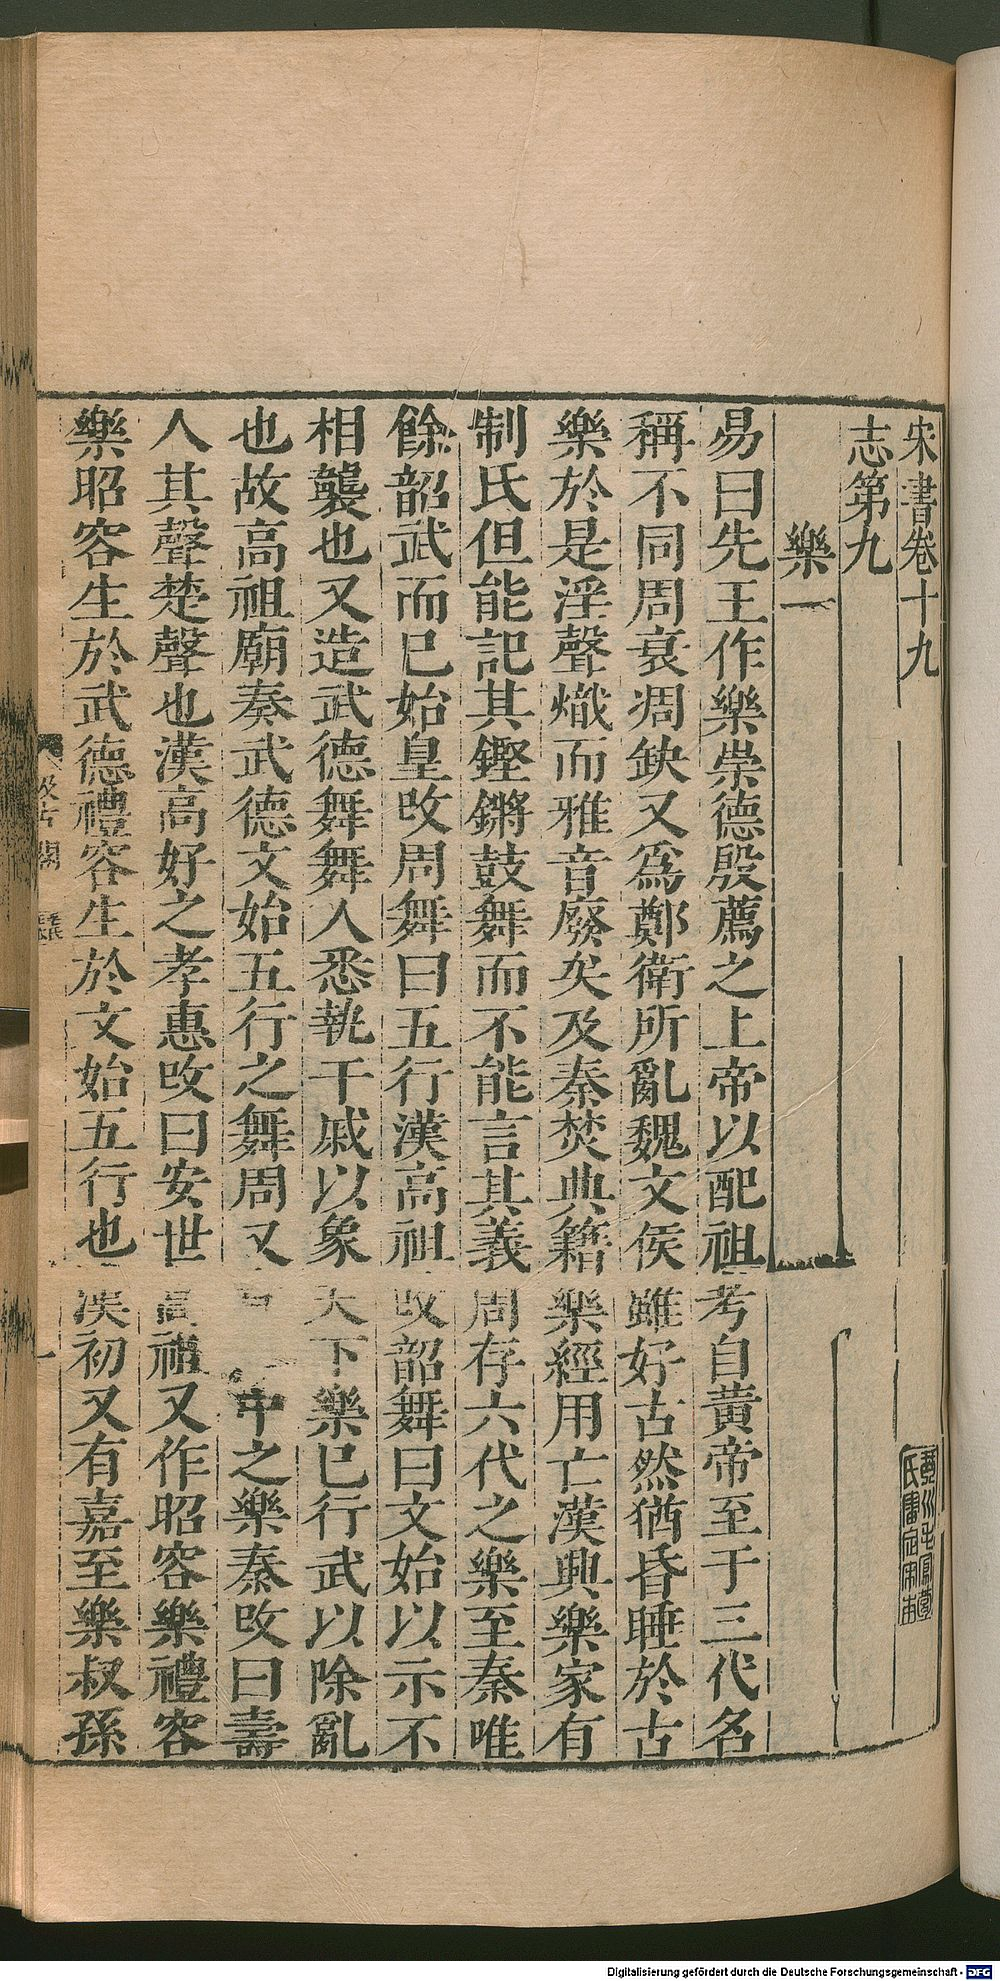 宋書卷十九
志第九
樂一
易曰先王作樂崇德殷薦之上帝以配祖考自黃帝至于三代名
稱不同周衰凋缺又爲鄭衞所亂魏文侯雖好古然猶昏睡於古
樂於是淫聲熾而雅音廢矣及秦焚典籍樂經用亡漢興樂家有
制氏但能記其鏗鏘鼓舞而不能言其義周存六代之樂至秦唯
餘韶武而已始皇改周舞曰五行漢高祖改韶舞曰文始以示不
相襲也又造武德舞舞人悉執干戚以象天下樂已行武以除亂
也故高祖廟奏武德文始五行之舞周又中之樂秦改曰壽
人其聲楚聲也漢高好之孝惠改曰安世高祖又作昭容樂禮容
樂昭容生於武德禮容生於文始五行也漢初又有嘉至樂叔孫
汲古閣
毛氏
一
Digitalisierung gefördert durch die Deutsche Forschungsgemeinschaft - DFG